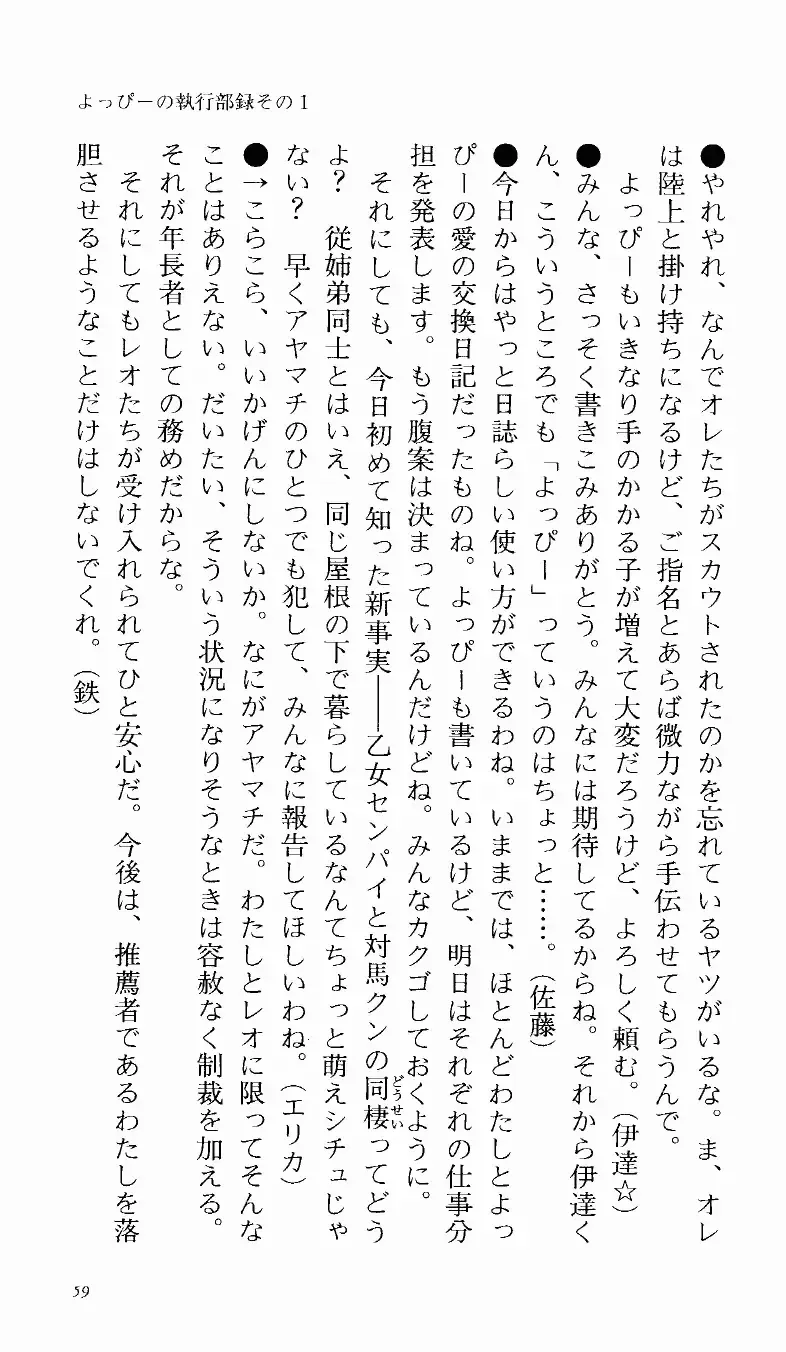 よっぴーの執行部録その1
●やれやれ、なんでオレたちがスカウトされたのかを忘れているヤツがいるな。ま、オレ
は陸上と掛け持ちになるけど、ご指名とあらば微力ながら手伝わせてもらうんで。
　よっぴーもいきなり手のかかる子が増えて大変だろうけど、よろしく頼む。（伊達☆）
●みんな、さっそく書きこみありがとう。みんなには期待してるからね。それから伊達く
ん、こういうところでも「よっぴー」っていうのはちょっと……。（佐藤）
●今日からはやっと日誌らしい使い方ができるわね。いままでは、ほとんどわたしとよっ
ぴーの愛の交換日記だったものね。よっぴーも書いているけど、明日はそれぞれの仕事分
担を発表します。もう腹案は決まっているんだけどね。みんなカクゴしておくように。
　それにしても、今日初めて知った新事実――乙女センパイと対馬クンの同棲ってどう
どうせい
よ？　従姉弟同士とはいえ、同じ屋根の下で暮らしているなんてちょっと萌えシチュじゃ
ない？　早くアヤマチのひとつでも犯して、みんなに報告してほしいわね。（エリカ）
●→こらこら、いいかげんにしないか。なにがアヤマチだ。わたしとレオに限ってそんな
ことはありえない。だいたい、そういう状況になりそうなときは容赦なく制裁を加える。
それが年長者としての務めだからな。
　それにしてもレオたちが受け入れられてひと安心だ。今後は、推薦者であるわたしを落
胆させるようなことだけはしないでくれ。（鉄）
59